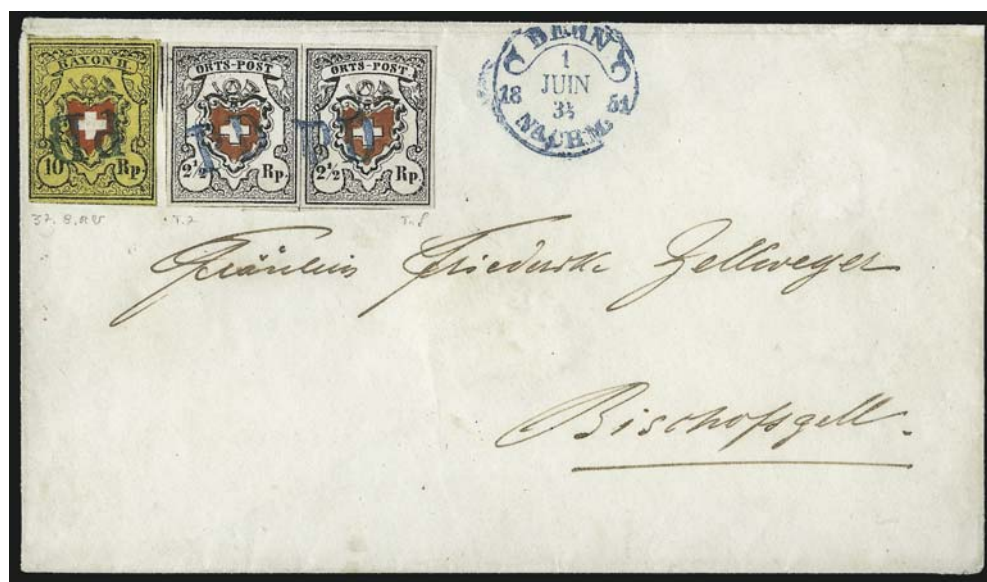 RAYON II.
10 Rp.
ORTS-POST
2½ Rp.
ORTS-POST
2½ Rp.
P.P.
BERN
1
JUIN
18 3½ 51
NACHM.
T.2
Fräulein Friederike Zellweger
Bischofszell.